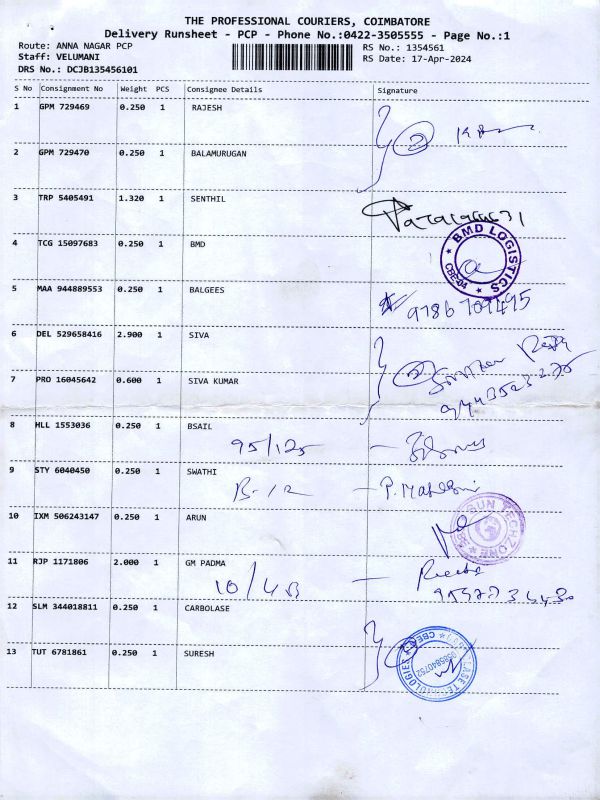 THE PROFESSIONAL COURIERS, COIMBATORE
Delivery Runsheet - PCP - Phone No.:0422-3505555 - Page No.:1
Route: ANNA NAGAR PCP
RS No.: 1354561
Staff: VELUMANI
RS Date: 17-Apr-2024
DRS No.: DCJB135456101
S No Consignment No Weight PCS Consignee Details Signature
1 GPM 729469 0.250 1 RAJESH
2 GPM 729470 0.250 1 BALAMURUGAN
3 TRP 5405491 1.320 1 SENTHIL
4 TCG 15097683 0.250 1 BMD
BMD LOGISTICS
CBE-04
5 MAA 944889553 0.250 1 BALGEES
9786709495
6 DEL 529658416 2.900 1 SIVA
7 PRO 16045642 0.600 1 SIVA KUMAR
8 HLL 1553036 0.250 1 BSAIL
95/125
9 STY 6040450 0.250 1 SWATHI
B-12
10 IXM 506243147 0.250 1 ARUN
SUN TECHZONE
11 RJP 1171806 2.000 1 GM PADMA
12 SLM 344018811 0.250 1 CARBOLASE
13 TUT 6781861 0.250 1 SURESH